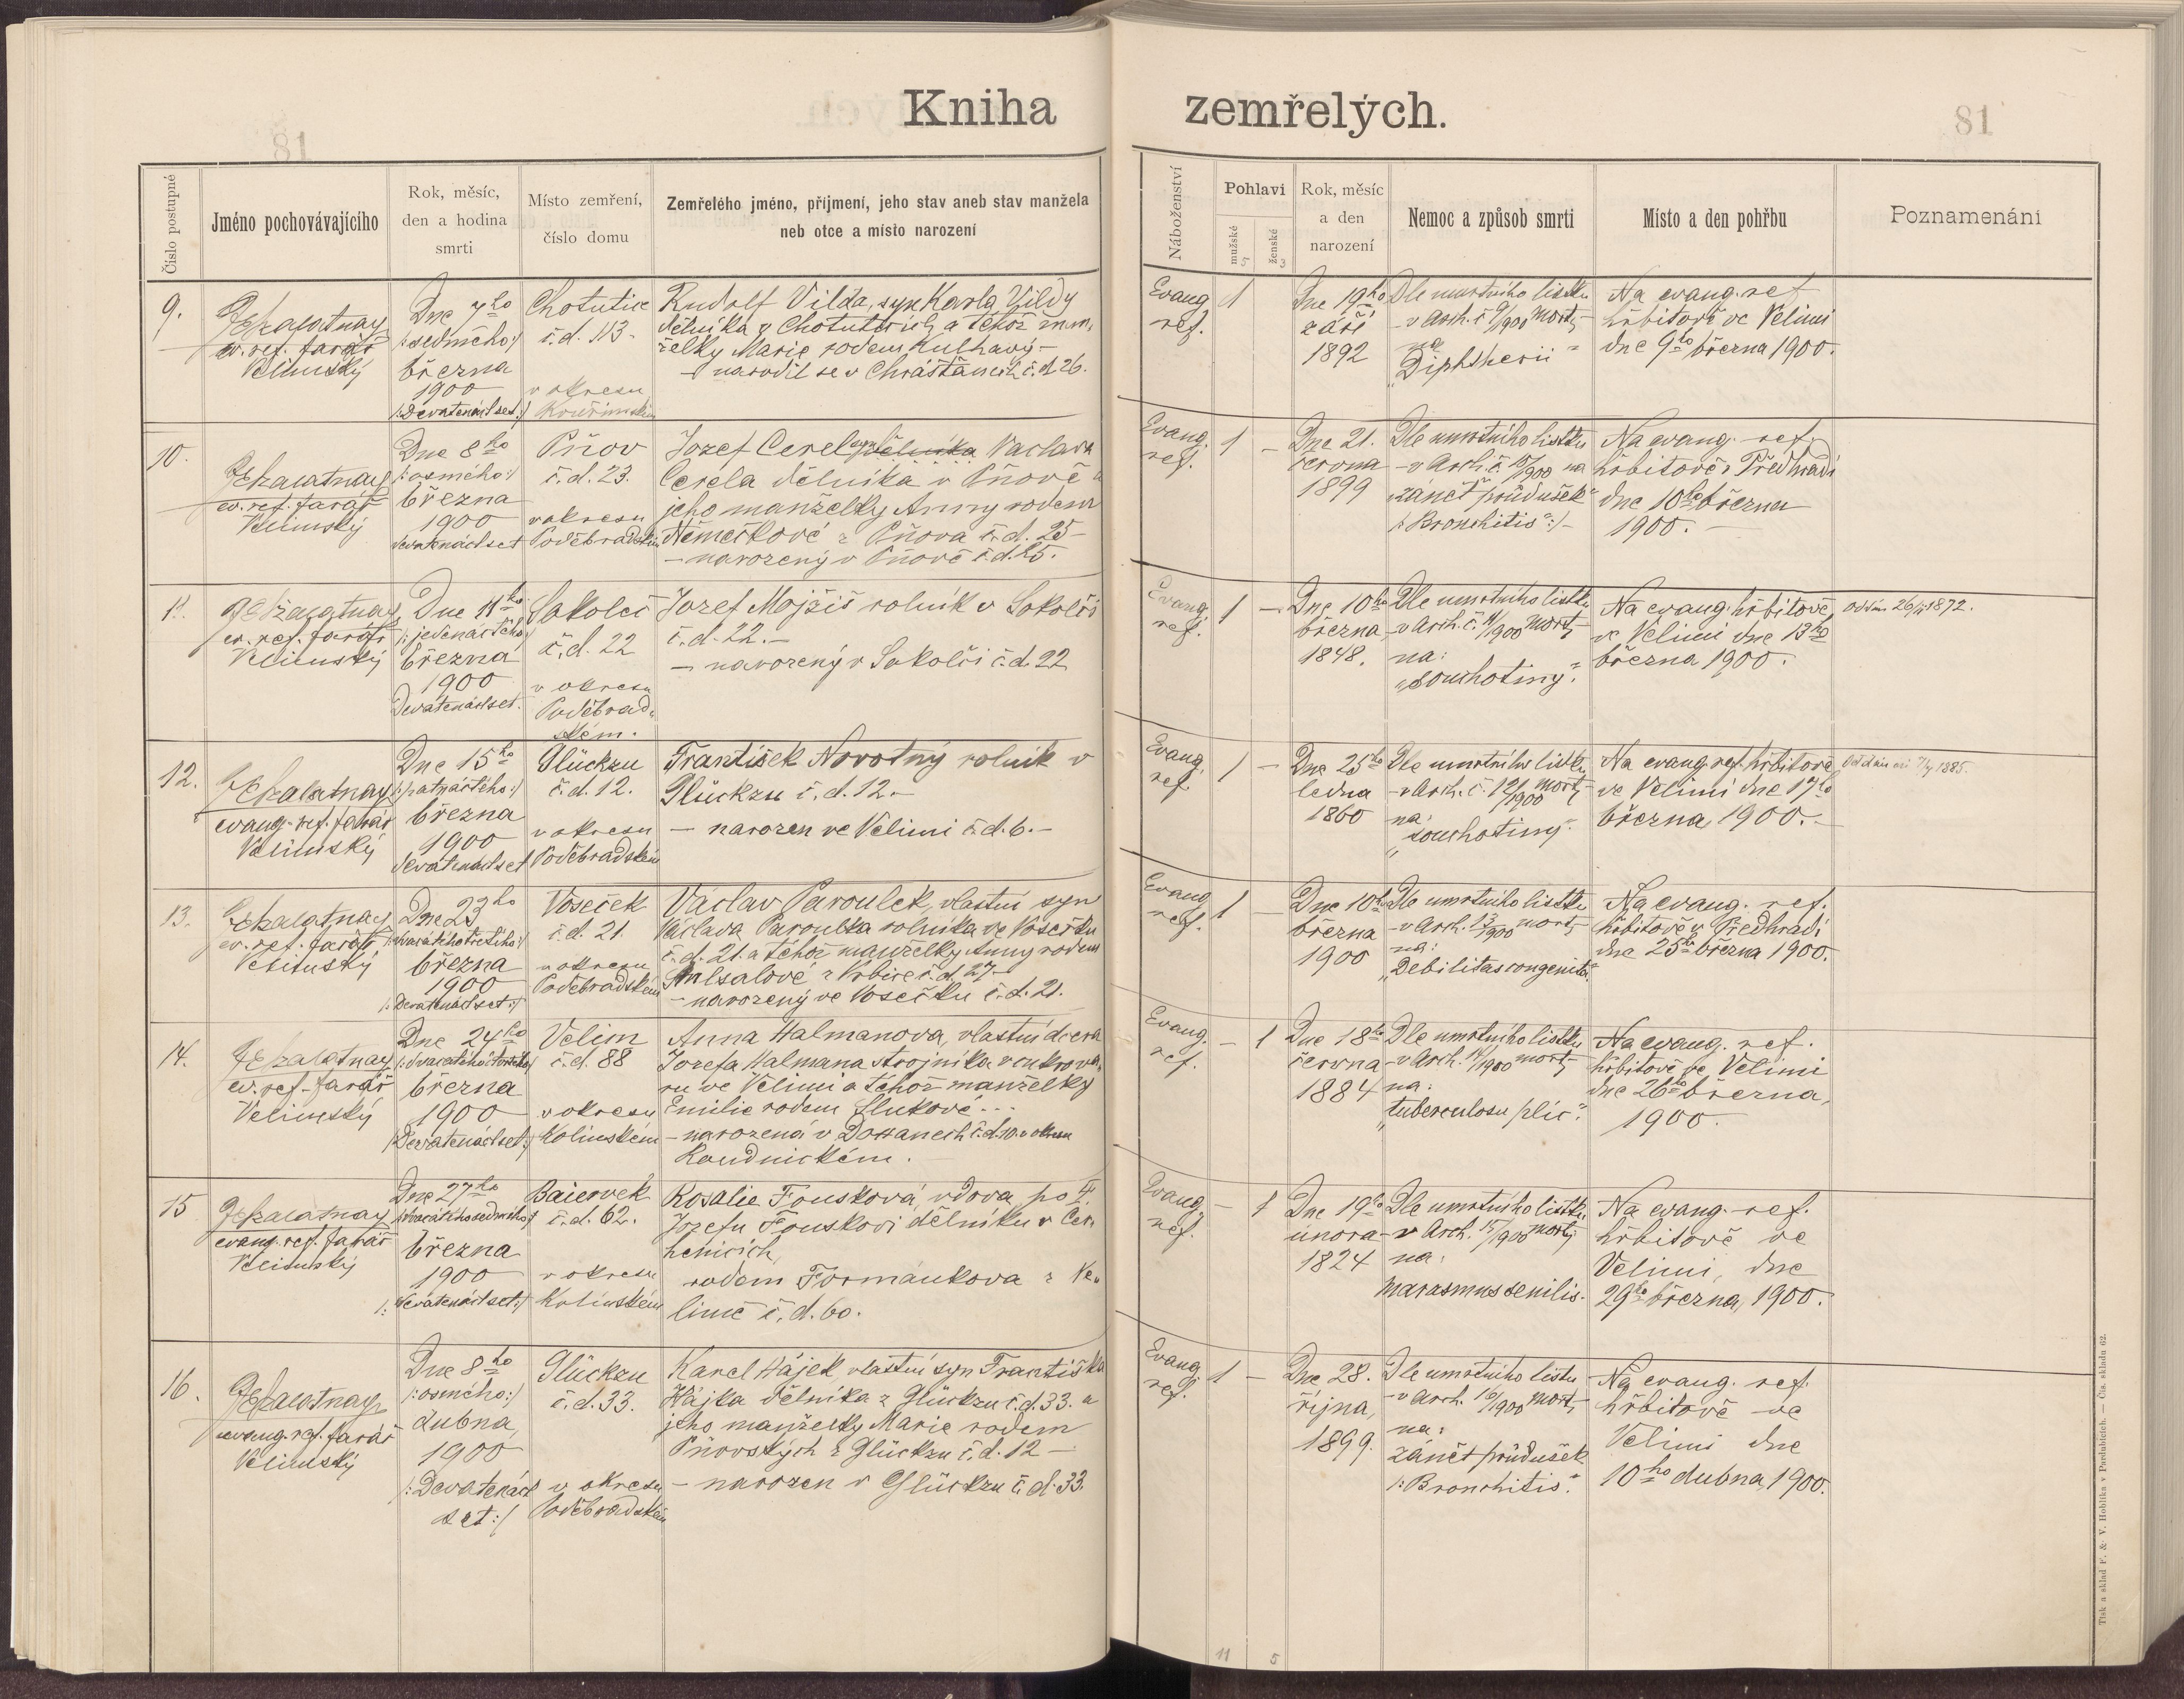 Kniha zemřelých.
81
81
Číslo postupné
Jméno pochovávajícího
Rok, měsíc,
den a hodina
smrti
Místo zemření,
číslo domu
Zemřelého jméno, příjmení, jeho stav aneb stav manžela
neb otce a místo narození
Náboženství
Pohlaví
mužské
5
ženské
3
Rok, měsíc
a den
narození
Nemoc a způsob smrti
Místo a den pohřbu
Poznamenání
9.
ev. ref. farář
Velimský
Dne 7ho
/:sedmého:/
března
1900
/:Devatenáctset:/
Chotutice
č.d. 113.
v okresu
Kouřimském
Rudolf Vilda, syn Karla Vildy
dělníka v Chotuticích a téhož man,
želky Marie rodem Kulhavý –
– narodil se v Chrášťanech č.d. 26.
Evang.
ref.
1
Dne 19ho
září
1892
Dle úmrtního lístku
v Arch. č. 9/1900 mort,
na
"Diphtherii"
Na evang. ref
hřbitově ve Velimi
dne 9ho března 1900.
10.
ev. ref. farář
Velimský
Dne 8ho
/:osmého:/
března
1900
devatenáctset
Pňov
č.d. 23.
v okresu
Poděbradském
Jozef Cerel syn dělníka Václava
Cerela dělníka v Pňově a
jeho manželky Anny rodem
Němečkové z Pňova č.d. 25 –
– narozený v Pňově č.d. 25.
Evang.
ref.
1 –
Dne 21.
června
1899
Dle úmrtního lístku
– v Arch. č. 10/1900 na
"zánět průdušek"
/:Bronchitis":/ –
Na evang. ref.
hřbitově v Předhradí
dne 10ho března
1900. –
11.
ev. ref. farář
Velimský
Dne 11ho
/:jedenáctého:/
března
1900
Devatenáctset.
Sokoleč
č.d. 22
v okresu
Poděbrad,
ském.
Jozef Mojžíš rolník v Sokolči
č.d. 22. –
– narozený v Sokolči č.d. 22
Evang.
ref.
1 –
Dne 10ho
března
1848.
Dle úmrtního lístku
– v Arch. č. 11/1900 mort,
na:
"souchotiny."
Na evang. hřbitově,
ve Velimi dne 13ho
března 1900.
12.
evang. ref. farář
Velimský
Dne 15ho
/:patnáctého:/
března
1900
devatenáctset
Glückzu
č.d. 12.
v okresu
Poděbradském
František Novotný rolník v
Glückzu č.d. 12. –
– narozen ve Velimi č.d. 6. –
Evang.
ref.
1 –
Dne 25ho
ledna
1860
Dle úmrtního lístku
– v Arch. č. 12/1900 mort,
na:
"souchotiny".
Na evang. ref. hřbitově
ve Velimi dne 17ho
března, 1900. –
13.
ev. ref. farář
Velimský
Dne 23ho
/:dvacátého třetího:/
března
1900
/:Devatenáctset:/
Voseček
č.d. 21.
v okresu
Poděbradském
Václav Paroulek, vlastní syn
Václava Paroulka rolníka ve Vosečku
č.d. 21. a téhož manželky Anny rodem
z Vrbice č.d. 27 –
– narozený ve Vosečku č.d. 21.
Evang.
ref.
1 –
Dne 10ho
března
1900
Dle úmrtního lístku
– v Arch. 13/1900 mort,
na:
"Debilitas congenita".
Na evang. ref.
hřbitově v Předhradí
dne 25ho března 1900.
14.
ev. ref. farář
Velimský
Dne 24ho
/:dvacátého čtvrtého:/
března
1900
/:Devatenáctset:/
Velim
č.d. 88
v okresu
Kolínském
Anna Halmanova, vlastní dcera
Jozefa Halmana strojníka v cukrova,
ru ve Velimi a téhož manželky
Emilie rodem Slukové...
– narozená v Doxanech č.d. 10. v okresu
Roudnickém.
Evang.
ref.
– 1
Dne 18ho
června
1884
Dle úmrtního lístku
– v Arch. 14/1900 mort,
na:
"tuberculosu plic".
Na evang. ref.
hřbitově ve Velimi
dne 26ho března,
1900.
15
evang. ref. farář
Velimský
Dne 27ho
/:dvacátého sedmého:/
března
1900
/:devatenáctset:/
Baiervek
č.d. 62.
v okresu
Kolínském
Rosalie Fousková, vdova po †.
Jozefu Fouskovi dělníku v Cer,
henicích,
rodem Formánkova z Ve,
limě č.d. 60.
Evang.
ref.
– 1
Dne 19ho
února
1824
Dle úmrtního lístku
– v Arch. 15/1900 mort,
na:
Marasmus senilis.
Na evang. ref.
hřbitově ve
Velimi, dne
29ho března, 1900.
16.
evang. ref. farář
Velimský
Dne 8ho
/:osmého:/
dubna,
1900
/:Devatenáct
set:/
Glückzu
č.d. 33.
v okresu
Poděbradském
Karel Hájek, vlastní syn Františka
Hájka dělníka z Glückzu č.d. 33. a
jeho manželky Marie rodem
Pňovských z Glückzu č.d. 12 –
– narozen v Glückzu č.d. 33.
Evang.
ref.
1 –
Dne 28.
října,
1899.
Dle úmrtního lístku
– v Arch. 16/1900 mort,
na:
zánět průdušek
/:Bronchitis".
Na evang. ref.
hřbitově ve
Velimi dne
10ho dubna, 1900.
11
5
Tisk a sklad F. & V. Hoblíka v Pardubicích. — Čís. skladu 62.